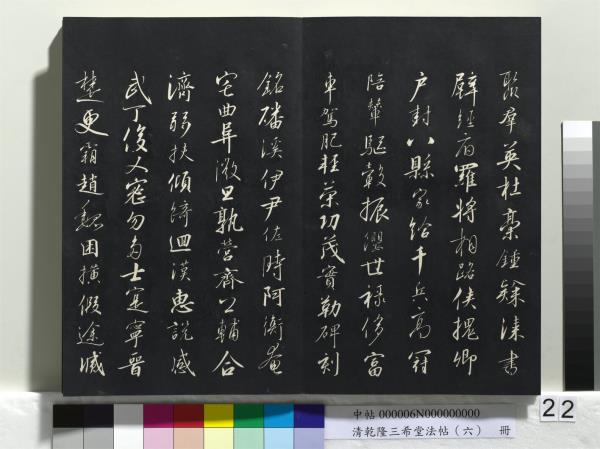 聚群英杜稾鍾隸漆書
壁經府羅將相路俠槐卿
戶封八縣家給千兵高冠
陪輦驅轂振纓世祿侈富
車駕肥輕策功茂實勒碑刻
銘磻溪伊尹佐時阿衡奄
宅曲阜微旦孰營齊公輔合
濟弱扶傾綺迴漢惠說感
武丁俊乂密勿多士寔寧晉
楚更霸趙魏困橫假途滅
22
中帖 000006N000000000
清乾隆三希堂法帖（六） 冊